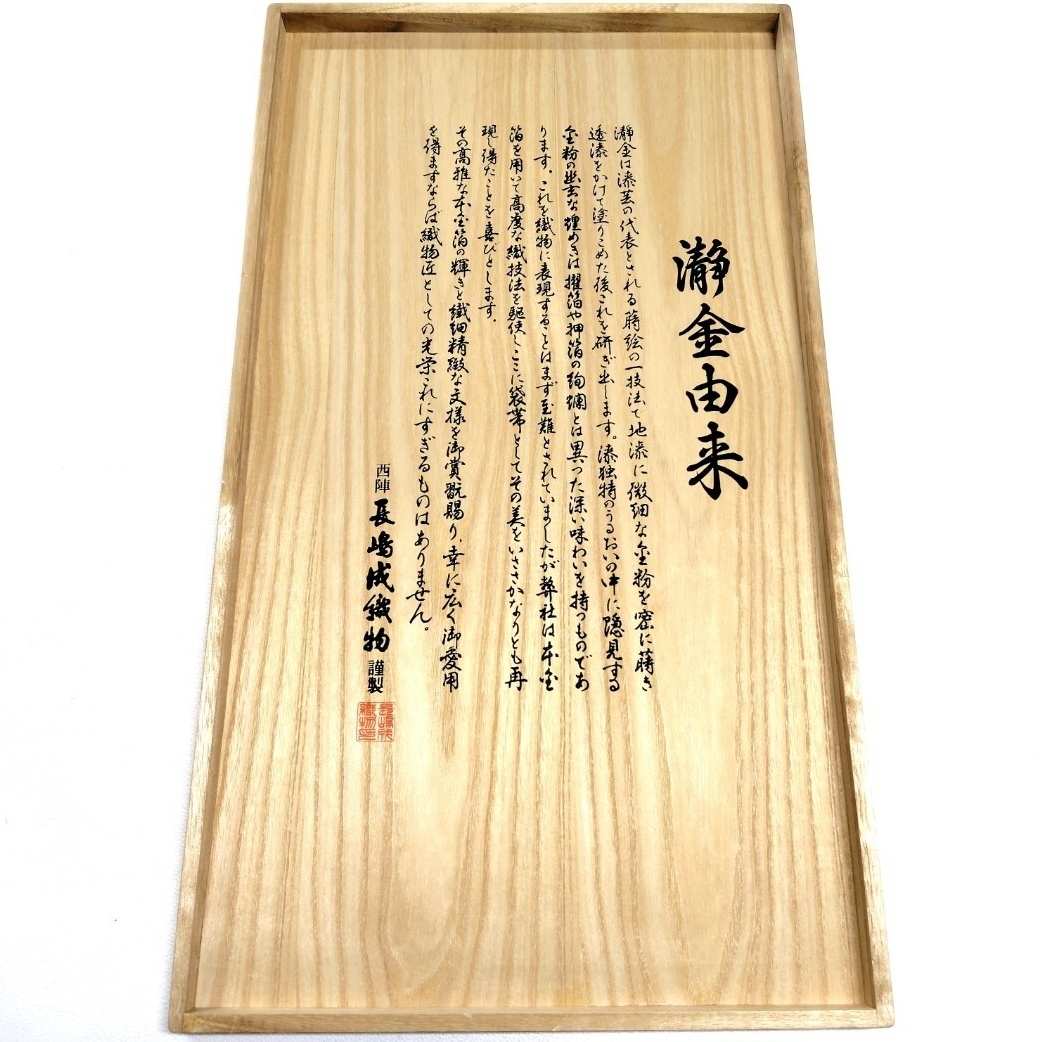 瀞金由来
瀞金は漆芸の代表とされる蒔絵の一技法で地漆に微細な金粉を密に蒔き
透漆をかけて塗りこめた後これを研ぎ出します。漆独特のうるおいの中に隠見する
金粉の幽玄な煌めきは擢箔や押箔の絢爛とは異った深い味わいを持つものであ
ります。これを織物に表現することはまず至難とされていましたが弊社は本金
箔を用いて高度な織技法を駆使しここに袋帯としてその美をいささかなりとも再
現し得たことを喜びとします。
その高雅な本金箔の輝きと繊細精緻な文様を御賞翫賜り、幸に広く御愛用
を得ますならば織物匠としての光栄これにすぎるものはありません。
西陣 長嶋成織物 謹製